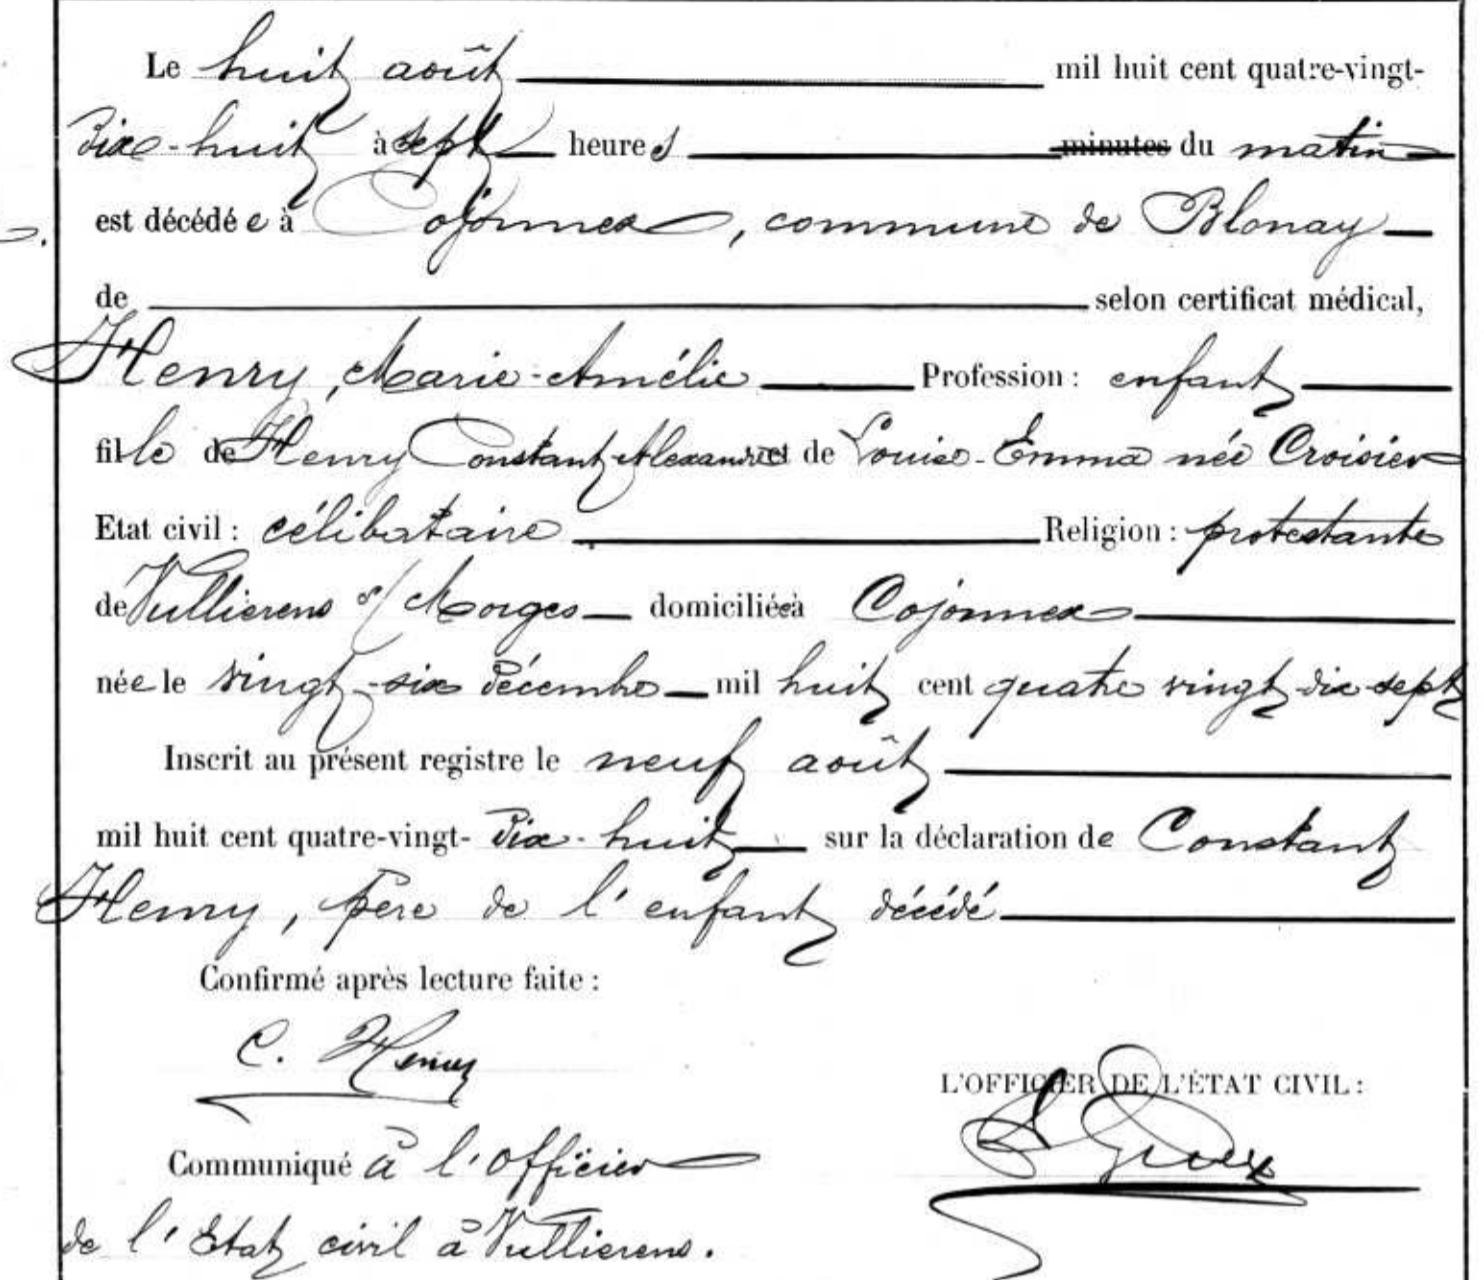 Le huit août mil huit cent quatre-vingt-
dix-huit à sept heures minutes du matin
est décédée à Cojonnex, commune de Blonay
de selon certificat médical,
Henry, Marie-Amélie Profession : enfant
fille de Henry Constant-Alexandre et de Louise-Emma née Croisier
Etat civil : célibataire Religion : protestante
de Vullierens s/ Morges domiciliée à Cojonnex
née le vingt-six décembre mil huit cent quatre vingt dix-sept
Inscrit au présent registre le neuf août
mil huit cent quatre-vingt-dix-huit sur la déclaration de Constant
Henry, père de l'enfant décédé
Confirmé après lecture faite :
C. Henry
L'OFFICIER DE L'ÉTAT CIVIL :
Communiqué à l'officier
de l'Etat civil à Vullierens.